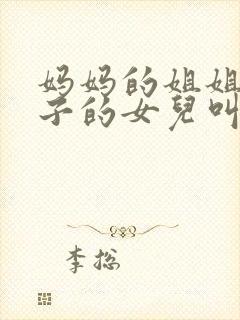 妈妈的姐姐
子的女兒叫
李總